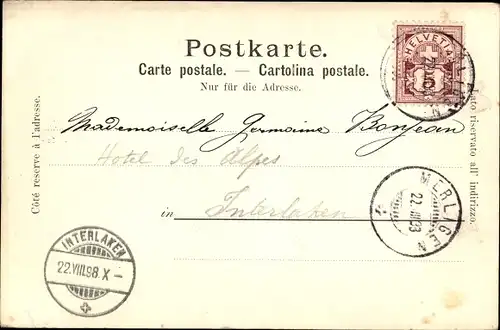 Postkarte.
Carte postale. — Cartolina postale.
Nur für die Adresse.
HELVETIA
Côté réservé à l'adresse.
lato riservato all' indirizzo.
Mademoiselle Germaine Bonjean
Hotel des Alpes
in Interlaken
MERLIGEN
INTERLAKEN
22.VIII.98.X–